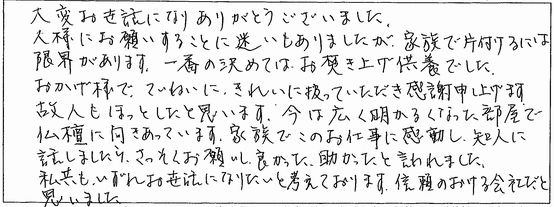 大変お世話になりありがとうございました。
人様にお願いすることに迷いもありましたが、家族で片付けるには
限界があります。一番の決めてはお焚き上げ供養でした。
おかげ様で、ていねいに、きれいに扱っていただき感謝申し上げます
故人もほっとしたと思います。今は広く明かるくなった部屋で
仏壇に向きあっています。家族でこのお仕事に感動し、知人に
話しましたら、さっそくお願いし、良かった、助かったと言われました。
私共も、いずれお世話になりたいと考えております。信頼のおける会社だと
思いました